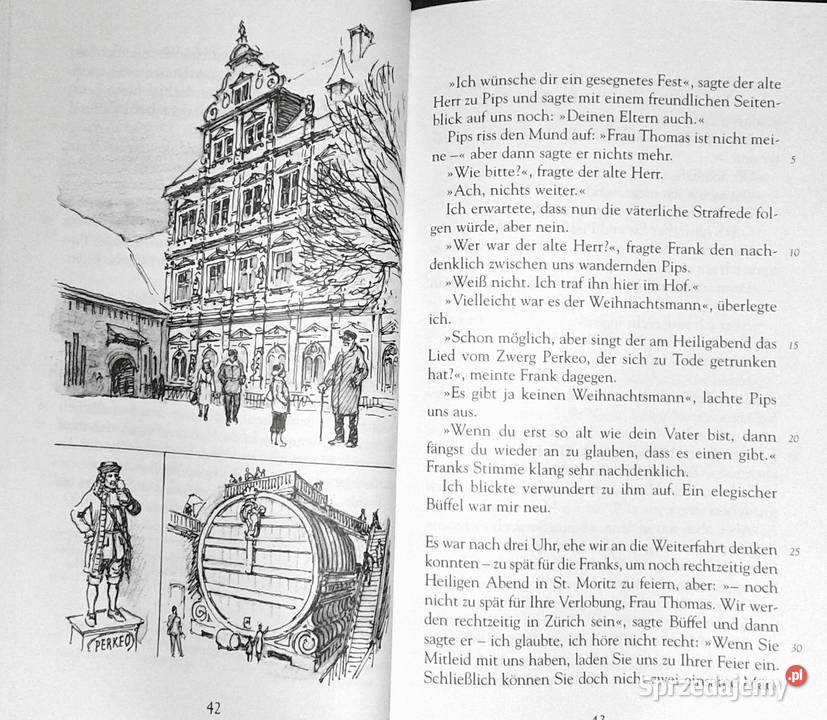 PERKEO
42
»Ich wünsche dir ein gesegnetes Fest«, sagte der alte
Herr zu Pips und sagte mit einem freundlichen Seiten-
blick auf uns noch: »Deinen Eltern auch.«
Pips riss den Mund auf: »Frau Thomas ist nicht mei-
ne –« aber dann sagte er nichts mehr.
5
»Wie bitte?«, fragte der alte Herr.
»Ach, nichts weiter.«
Ich erwartete, dass nun die väterliche Strafrede fol-
gen würde, aber nein.
»Wer war der alte Herr?«, fragte Frank den nach-
10
denklich zwischen uns wandernden Pips.
»Weiß nicht. Ich traf ihn hier im Hof.«
»Vielleicht war es der Weihnachtsmann«, überlegte
ich.
»Schon möglich, aber singt der am Heiligabend das
15
Lied vom Zwerg Perkeo, der sich zu Tode getrunken
hat?«, meinte Frank dagegen.
»Es gibt ja keinen Weihnachtsmann«, lachte Pips
uns aus.
»Wenn du erst so alt wie dein Vater bist, dann
20
fängst du wieder an zu glauben, dass es einen gibt.«
Franks Stimme klang sehr nachdenklich.
Ich blickte verwundert zu ihm auf. Ein elegischer
Büffel war mir neu.
Es war nach drei Uhr, ehe wir an die Weiterfahrt denken
25
konnten – zu spät für die Franks, um noch rechtzeitig den
Heiligen Abend in St. Moritz zu feiern, aber: »– noch
nicht zu spät für Ihre Verlobung, Frau Thomas. Wir wer-
den rechtzeitig in Zürich sein«, sagte Büffel und dann
sagte er – ich glaubte, ich höre nicht recht: »Wenn Sie
30
Mitleid mit uns haben, laden Sie uns zu Ihrer Feier ein.
Schließlich können Sie doch nicht zwei
43
Sprzedajemy.pl